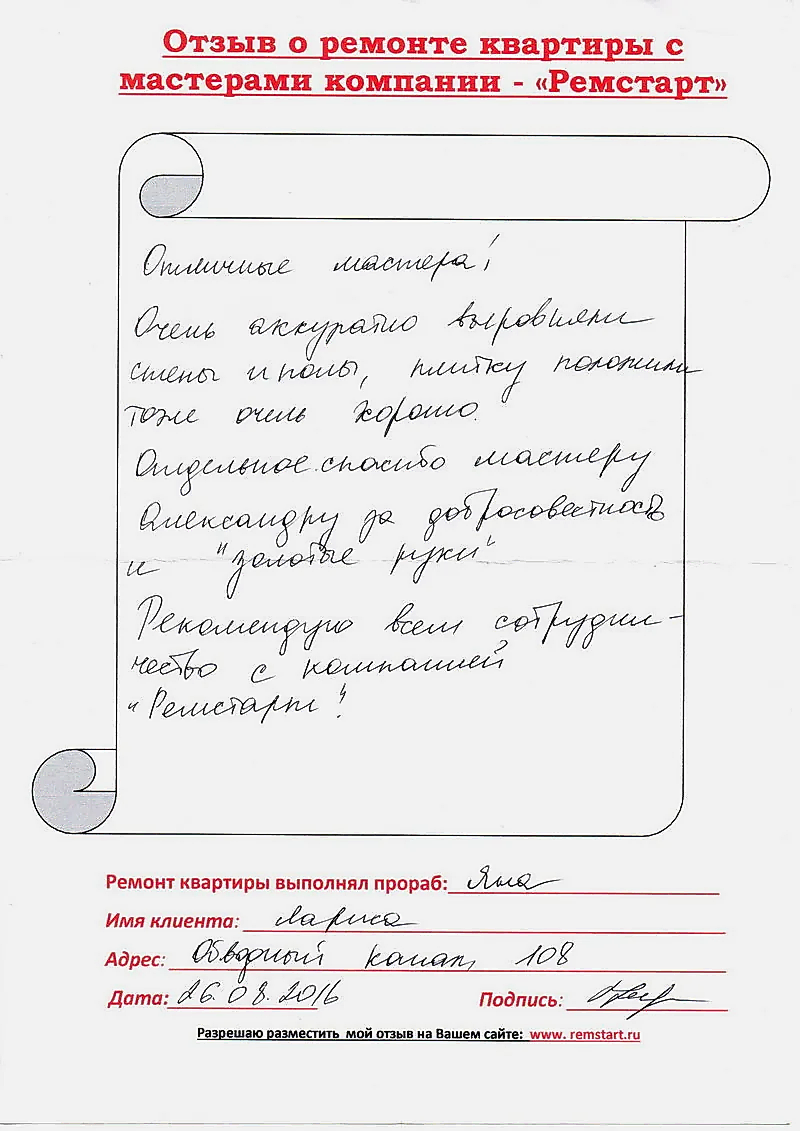 Отзыв о ремонте квартиры с
мастерами компании - «Ремстарт»
Отличные мастера!
Очень аккуратно выровняли
стены и полы, плитку положили
тоже очень хорошо.
Отдельное спасибо мастеру
Александру за добросовестность
и "золотые руки"
Рекомендую всем сотрудни-
чество с компанией
"Ремстарт"!
Ремонт квартиры выполнял прораб: Яна
Имя клиента: Лариса
Адрес: Обводный канал, 108
Дата: 26.08.2016 Подпись:
Разрешаю разместить мой отзыв на Вашем сайте: www. remstart.ru